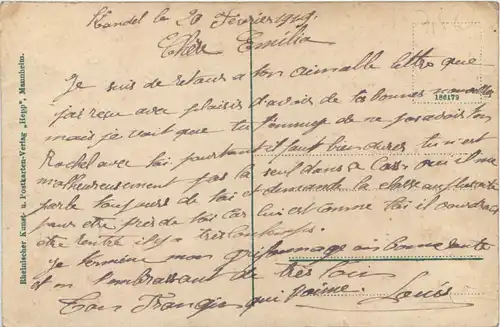 Handel le 20 Février 1919.
Chère Emilia
Je suis de retour a ton aimable lettre que
j'ai reçu avec plaisir d'avoir de tes bonnes nouvelles
mais je voit que tu t'ennuye de ne pas avoir ton
avec toi pourtant il faut bien tu n'est
malheureusement pas la seul dans a cas ou il me
parle toujours de toi et demande la classe
pour être près de toi car lui est comme toi il voudrait
être rentré il y a très longtemps.
Je termine mon griffonnage en bonne santé
et en t'embrassant de très loin
Ton Français qui t'aime. Louis
186179
Rheinischer Kunst- u. Postkarten-Verlag „Hepp", Mannheim.